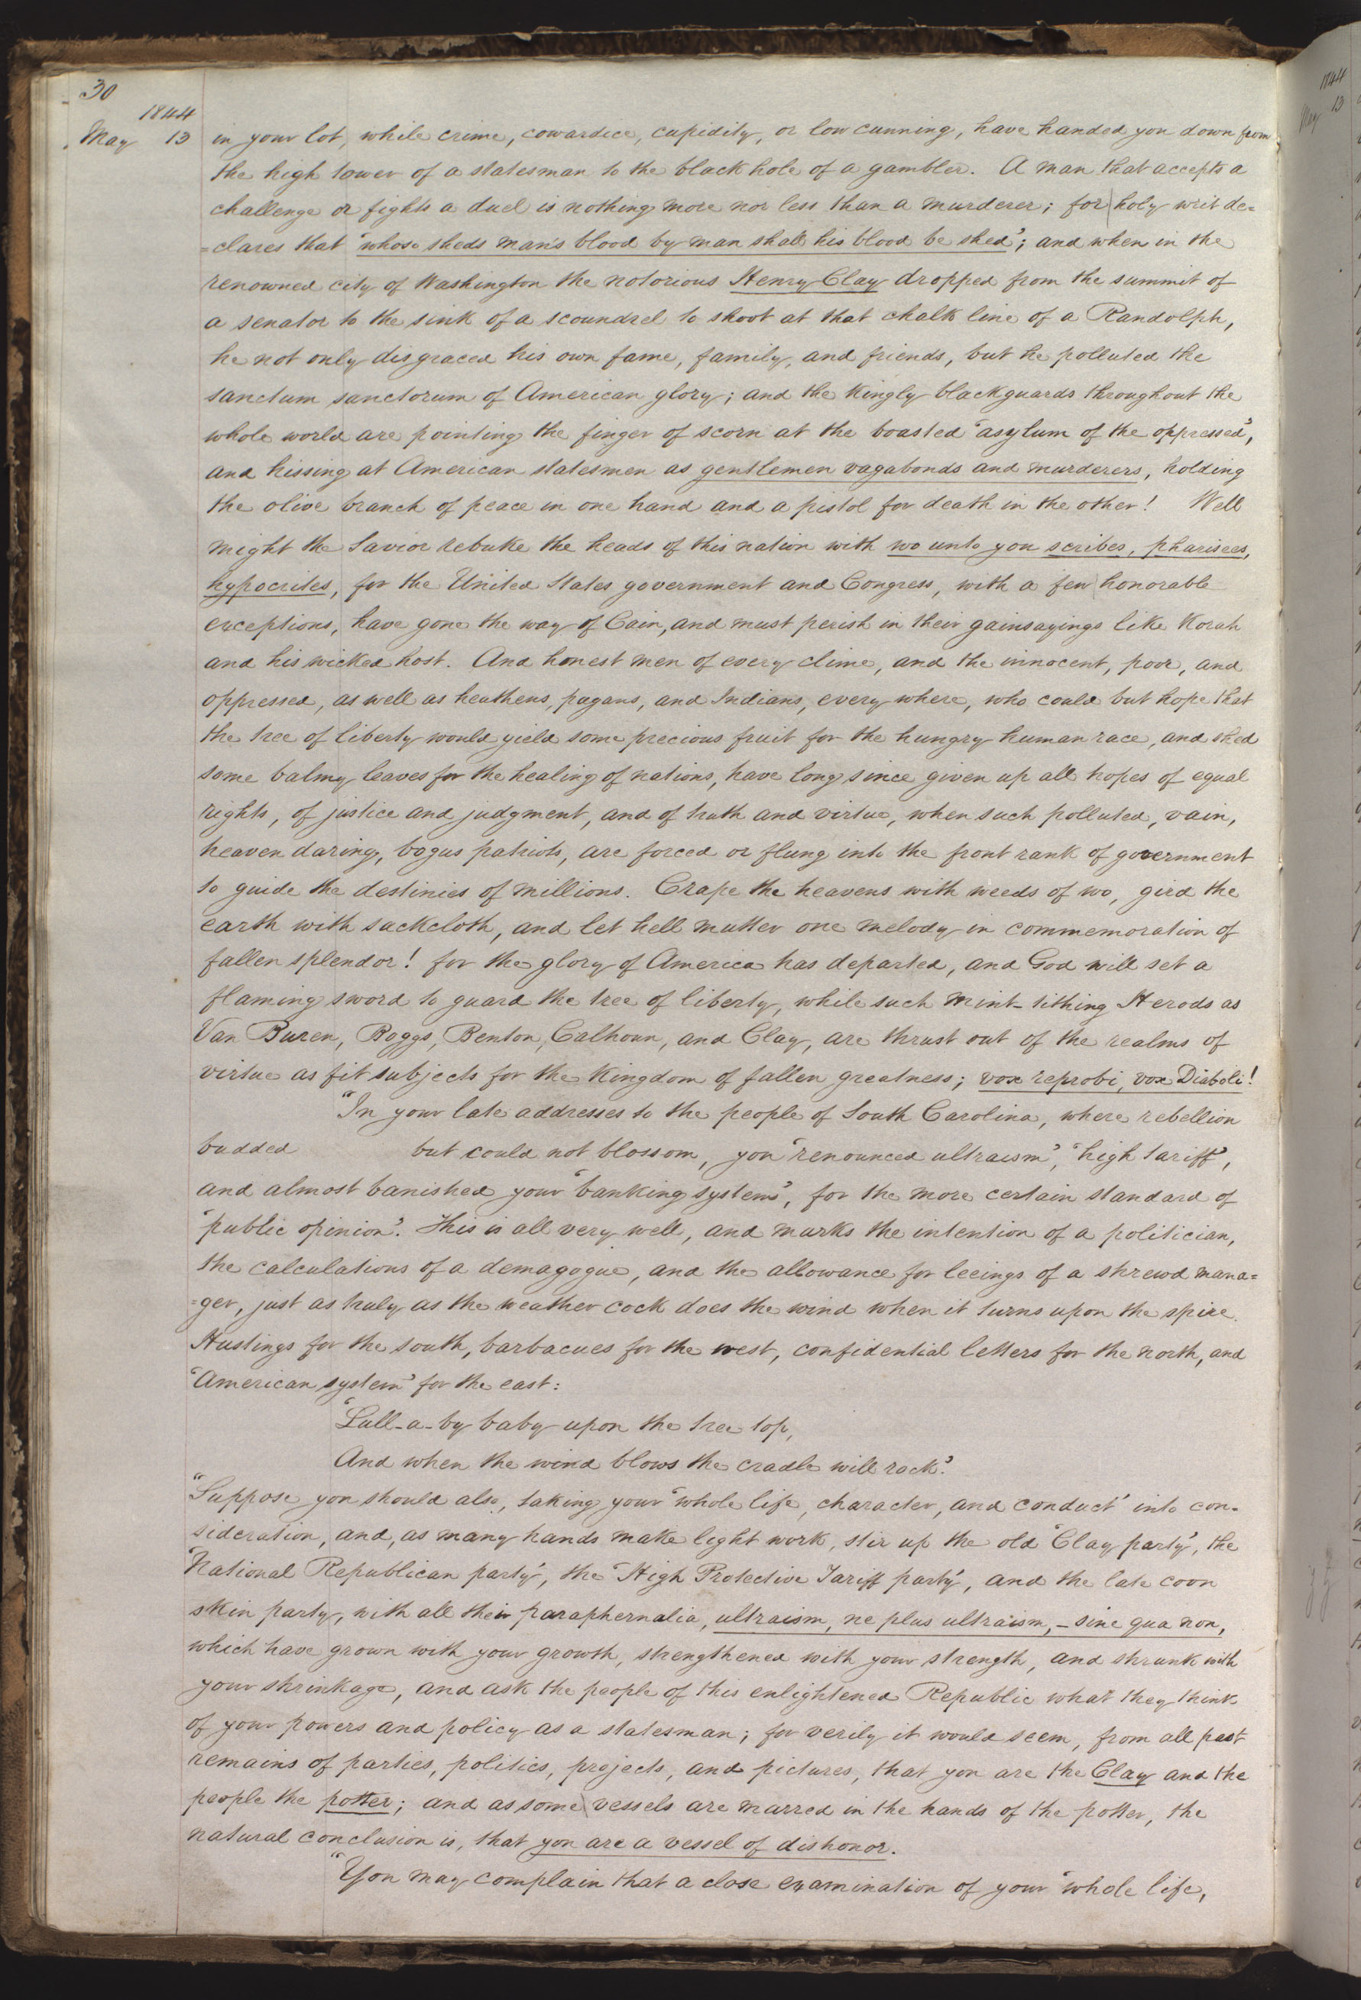 30
1844
May 13 in your lot, while crime, cowardice, cupidity, or low cunning, have handed you down from
the high tower of a statesman to the black hole of a gambler. A man that accepts a
challenge or fights a duel is nothing more nor less than a murderer; for holy writ de=
=clares that "whoso sheds man's blood by man shall his blood be shed"; and when in the
renowned city of Washington the notorious Henry Clay dropped from the summit of
a senator to the sink of a scoundrel to shoot at that chalk line of a Randolph,
he not only disgraced his own fame, family, and friends, but he polluted the
sanctum sanctorum of American glory; and the kingly blackguards throughout the
whole world are pointing the finger of scorn at the boasted "asylum of the oppressed",
and hissing at American statesmen as gentlemen vagabonds and murderers, holding
the olive branch of peace in one hand and a pistol for death in the other! Well
might the Savior rebuke the heads of this nation with wo unto you scribes, pharisees,
hypocrites, for the United States government and Congress, with a few honorable
exceptions, have gone the way of Cain, and must perish in their gainsayings like Korah
and his wicked host. And honest men of every clime, and the innocent, poor, and
oppressed, as well as heathens, pagans, and Indians, every where, who could but hope that
the tree of liberty would yield some precious fruit for the hungry human race, and shed
some balmy leaves for the healing of nations, have long since given up all hopes of equal
rights, of justice and judgment, and of truth and virtue, when such polluted, vain,
heaven daring, bogus patriots, are forced or flung into the front rank of government
to guide the destinies of millions. Crape the heavens with weeds of wo, gird the
earth with sackcloth, and let hell mutter one melody in commemoration of
fallen splendor! for the glory of America has departed, and God will set a
flaming sword to guard the tree of liberty, while such mint-tithing Herods as
Van Buren, Boggs, Benton, Calhoun, and Clay, are thrust out of the realms of
virtue as fit subjects for the kingdom of fallen greatness; vox reprobi, vox Diaboli!
"In your late addresses to the people of South Carolina, where rebellion
budded but could not blossom, you "renounced ultraism", "high tariff",
and almost banished your "banking systems", for the more certain standard of
"public opinion". This is all very well, and marks the intention of a politician,
the calculations of a demagogue, and the allowance for leeings of a shrewd mana=
=ger, just as truly as the weather cock does the wind when it turns upon the spire.
Hustings for the south, barbacues for the west, confidential letters for the north, and
"American system" for the east:
"Lull-a-by baby upon the tree top,
And when the wind blows the cradle will rock."
"Suppose you should also, taking your "whole life, character, and conduct" into con-
sideration, and, as many hands make light work, stir up the old "Clay party", the
"National Republican party", the "High Protective Tariff party", and the late coon
skin party, with all their paraphernalia, ultraism, ne plus ultraism, - sine qua non,
which have grown with your growth, strengthened with your strength, and shrunk with
your shrinkage, and ask the people of this enlightened Republic what they think
of your powers and policy as a statesman; for verily it would seem, from all past
remains of parties, politics, projects, and pictures, that you are the Clay and the
people the potter; and as some vessels are marred in the hands of the potter, the
natural conclusion is, that you are a vessel of dishonor.
"You may complain that a close examination of your "whole life,
1844
May 13